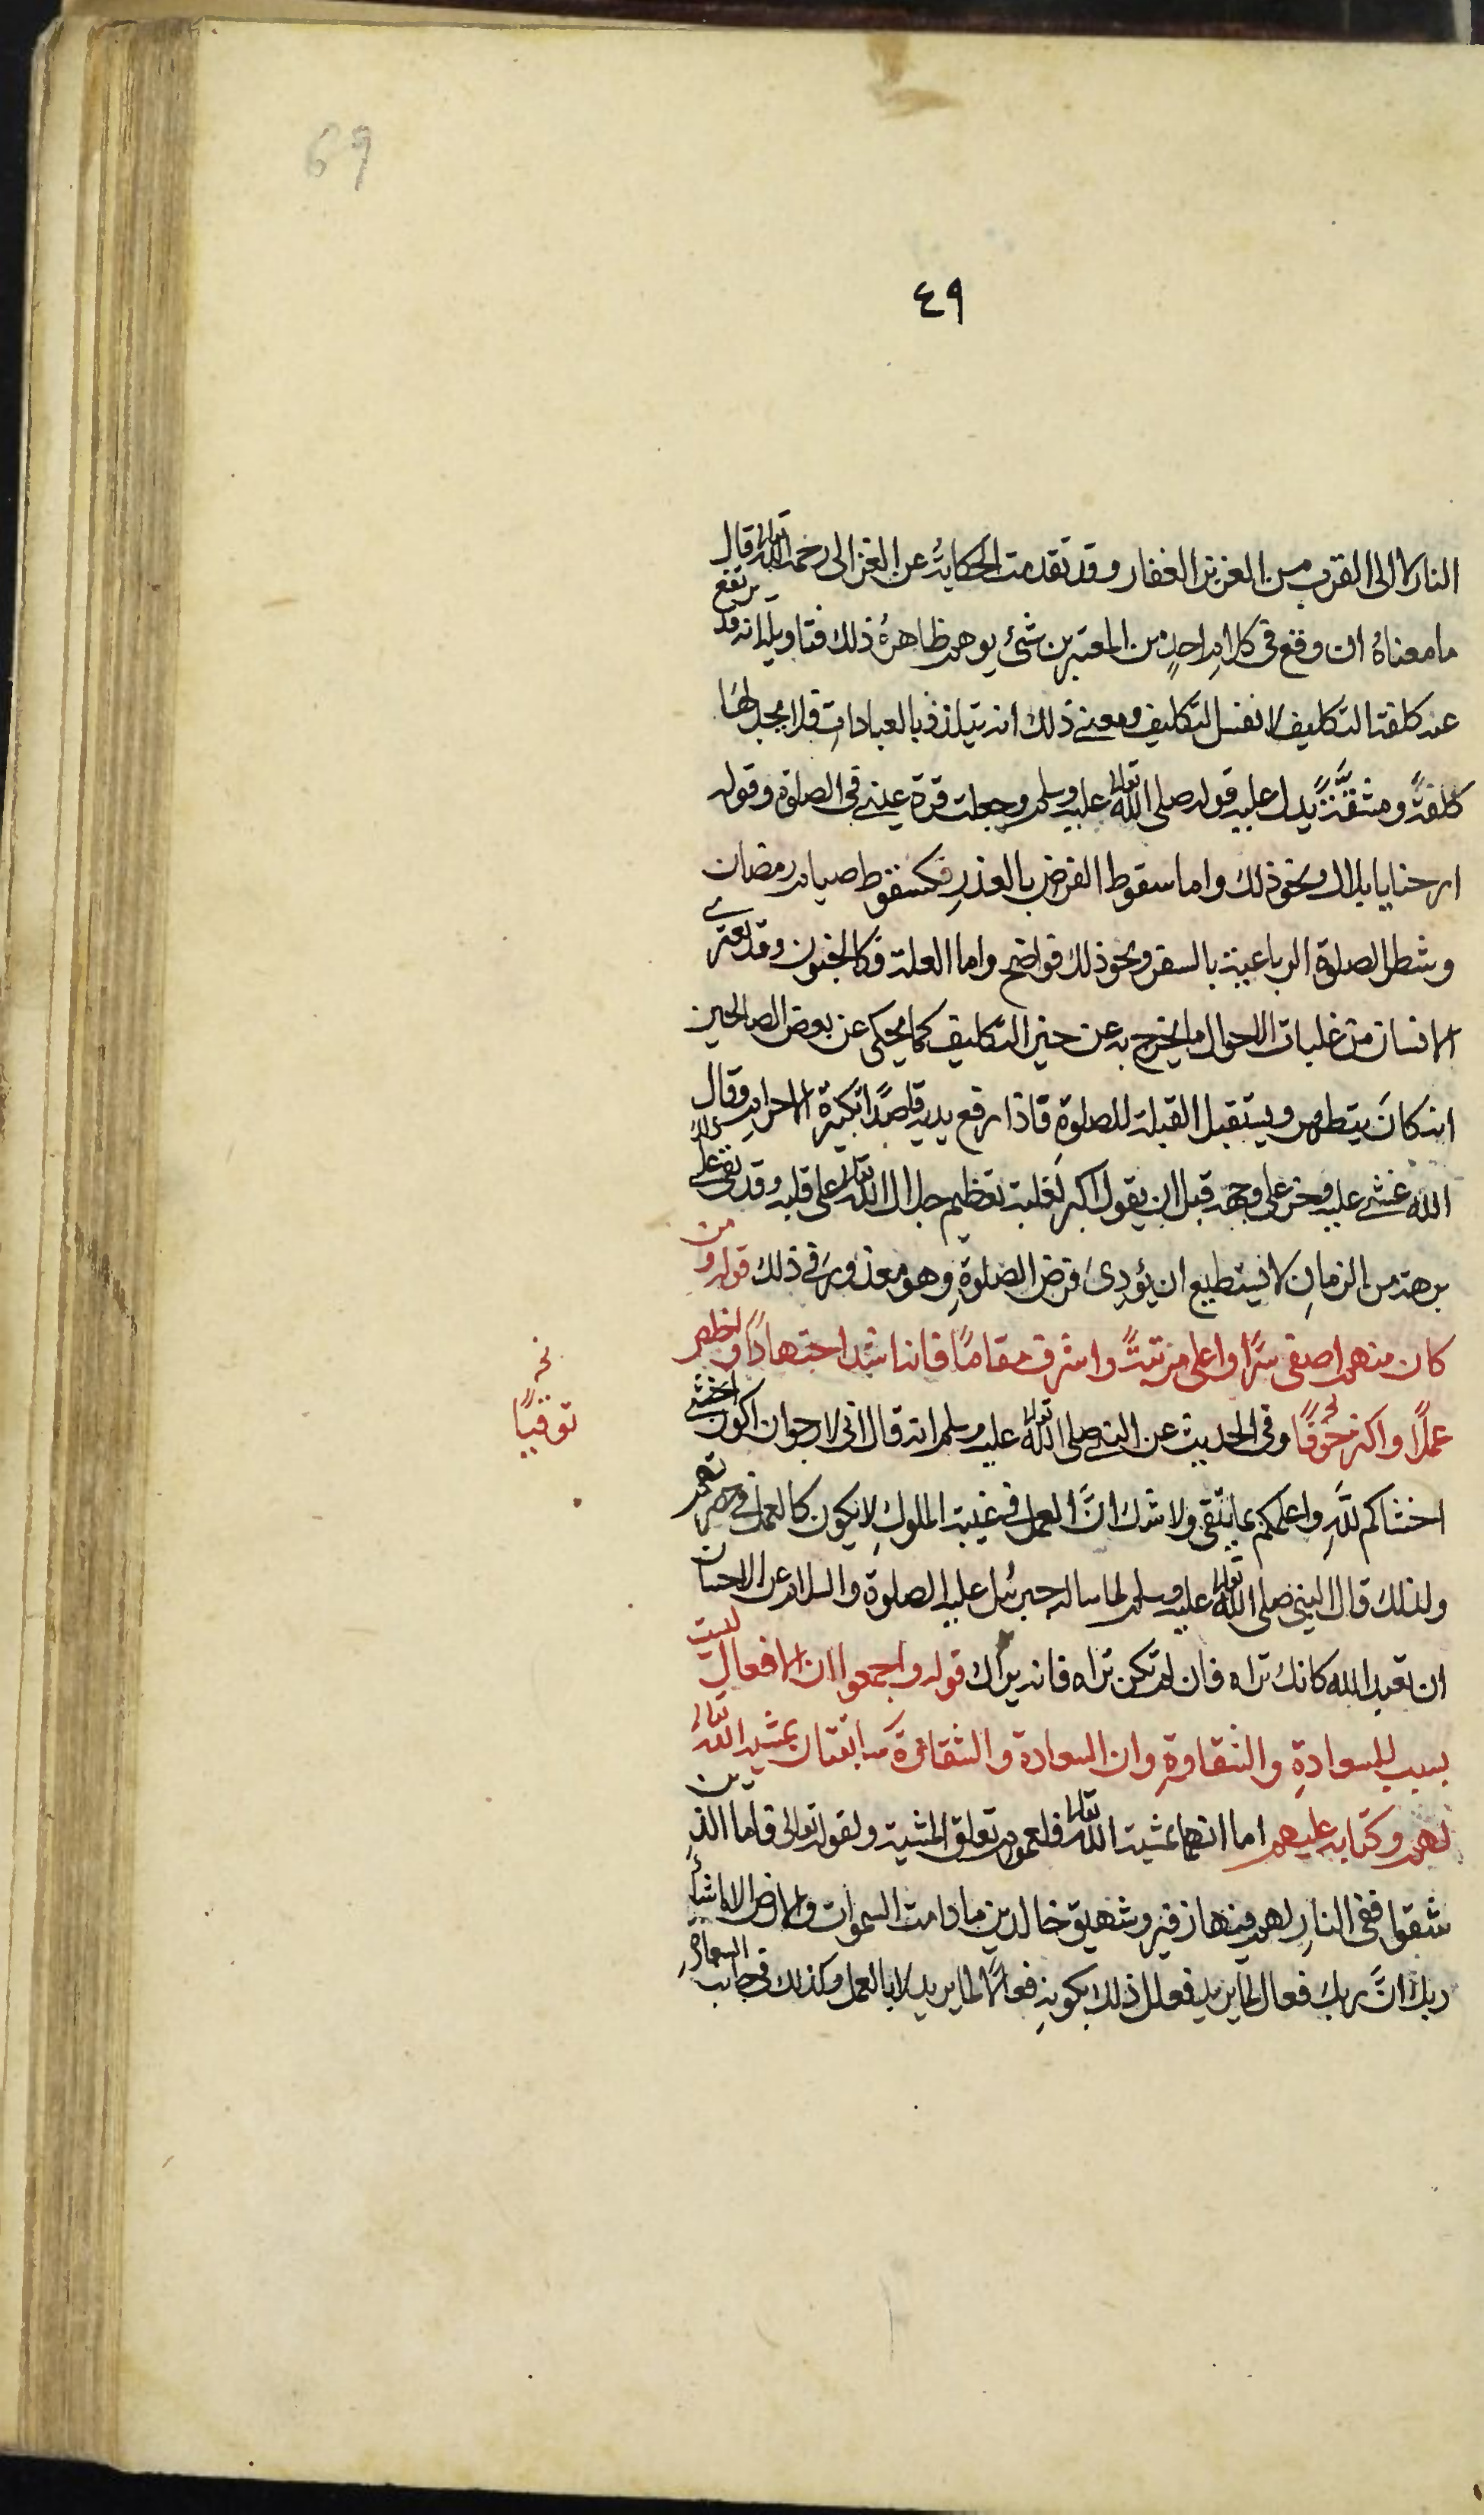 69
٤٩
النار لا الى القرب من العزيز الغفار وقد تقدمت الحكاية عن الغزالى رحمه الله تعالى قال
ما معناه ان وقع فى كلام احد من المعتبرين شئ يوهم ظاهره ذلك فتاويله انه قد يرتفع
عنه كلفة التكليف لا نفس التكليف ومعنى ذلك انه يتلذذ بالعبادات فلا يجد لها
كلفةً ومشقّةً يدل عليه قوله صلى الله تعالى عليه وسلم وجعلت قرة عينى فى الصلوة وقوله
ارحنا يا بلال ونحو ذلك واما سقوط الفرض بالعذر فكسقوط صيام رمضان
وشطر الصلوة الرباعية بالسفر ونحو ذلك فواضح واما العلة فكالجنون وقد يعترى
الانسان من غلبات الاحوال ما يخرج به عن حيز التكليف كما يحكى عن بعض الصالحين
انه كانَ يتطهر ويستقبل القبلة للصلوةِ فاذا رفع يديه قاصدًا تكبيرة الاحرام وقال
الله غشى عليه وخر على وجهه قبل ان يقول اكبر لغلبة تعظيم جلال الله تعالى على قلبه وقد بقى على ذلك
برهة من الزمانِ لا يستطيع ان يؤدى فرض الصلوةِ وهو معذور فى ذلك قوله ومن
كان منهم اصفى سرًا واعلى مرتبةً واشرف مقامًا فانه اشد اجتهادًا واخلص
عملًا واكثر خوفًا وفى الحديث عن النبى صلى الله تعالى عليه وسلم انه قال انى لارجو ان اكون اخشى
نخ
توقيًا
اخشاكم للهِ واعلمكم بما يتقى ولا شك انَّ العمل فى غيبة الملوكِ لا يكون كالعمل فى حضرتهم
ولذلك قال النبى صلى الله تعالى عليه وسلم لما ساله جبرئيل عليه الصلوة والسلام عن الاحسان
ان تعبد الله كانك تراه فان لم تكن تراه فانه يراك قوله واجمعوا ان الافعال ليست
بسبب للسعادةِ والشقاوةِ وان السعادة والشقاوة سابقتان بمشية الله تعالى
لهم وكتابه عليهم اما انهما بمشية الله تعالى فلعموم تعلق المشية ولقوله تعالى فاما الذين
شقوا ففى النارِ لهم فيها زفير وشهيق خالدين ما دامت السموات والارض الا ما شاء
ربك انَّ ربك فعال لما يريد فعلل ذلك بكونهِ فعالًا لما يريد لا بالعمل وكذلك فى جانب السعادةِ